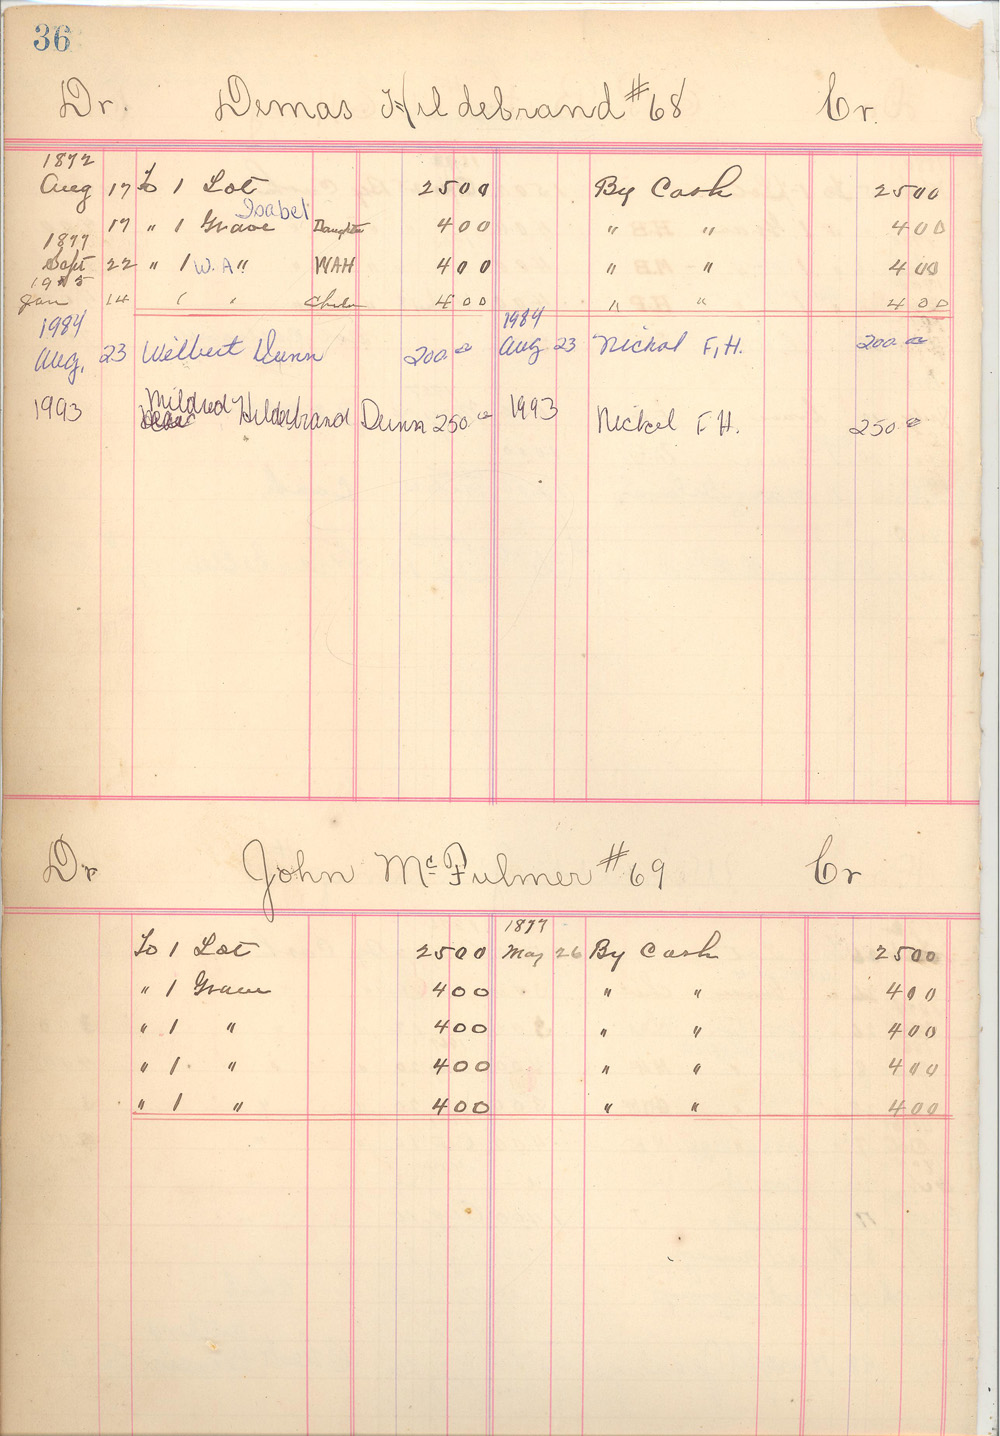 36
Dr. Demas Hildebrand #68 Cr.
1872
Aug 17 To 1 Lot 2500 By Cash 2500
Isabel
17 " 1 Grave Daughter 400 " " 400
1877
Sept 22 " 1 W.A " WAH 400 " " 400
Jan 14 " " 400 " " 400
1984 1984
Aug. 23 Wilbert Dunn 200.00 Aug 23 Nickol F.H. 200.00
1993 Mildred Hildebrand Dunn 250.00 1993 Nickel F.H. 250.00
Dr John McFulmer #69 Cr
1877
To 1 Lot 2500 May 26 By Cash 2500
" 1 Grave 400 " " 400
" 1 " 400 " " 400
" 1 " 400 " " 400
" 1 " 400 " " 400